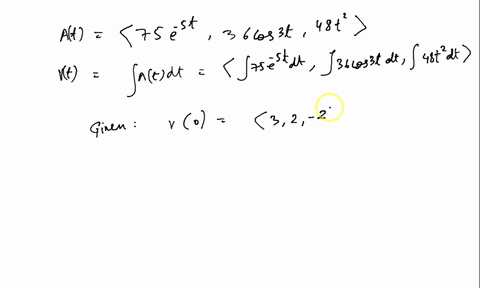 A(t) = ⟨75e^{-5t}, 36cos3t, 48t²⟩
V(t) = ∫A(t)dt = ⟨∫75e^{-5t}dt, ∫36cos3t dt, ∫48t²dt⟩
Given: v(0) = ⟨3, 2, -2